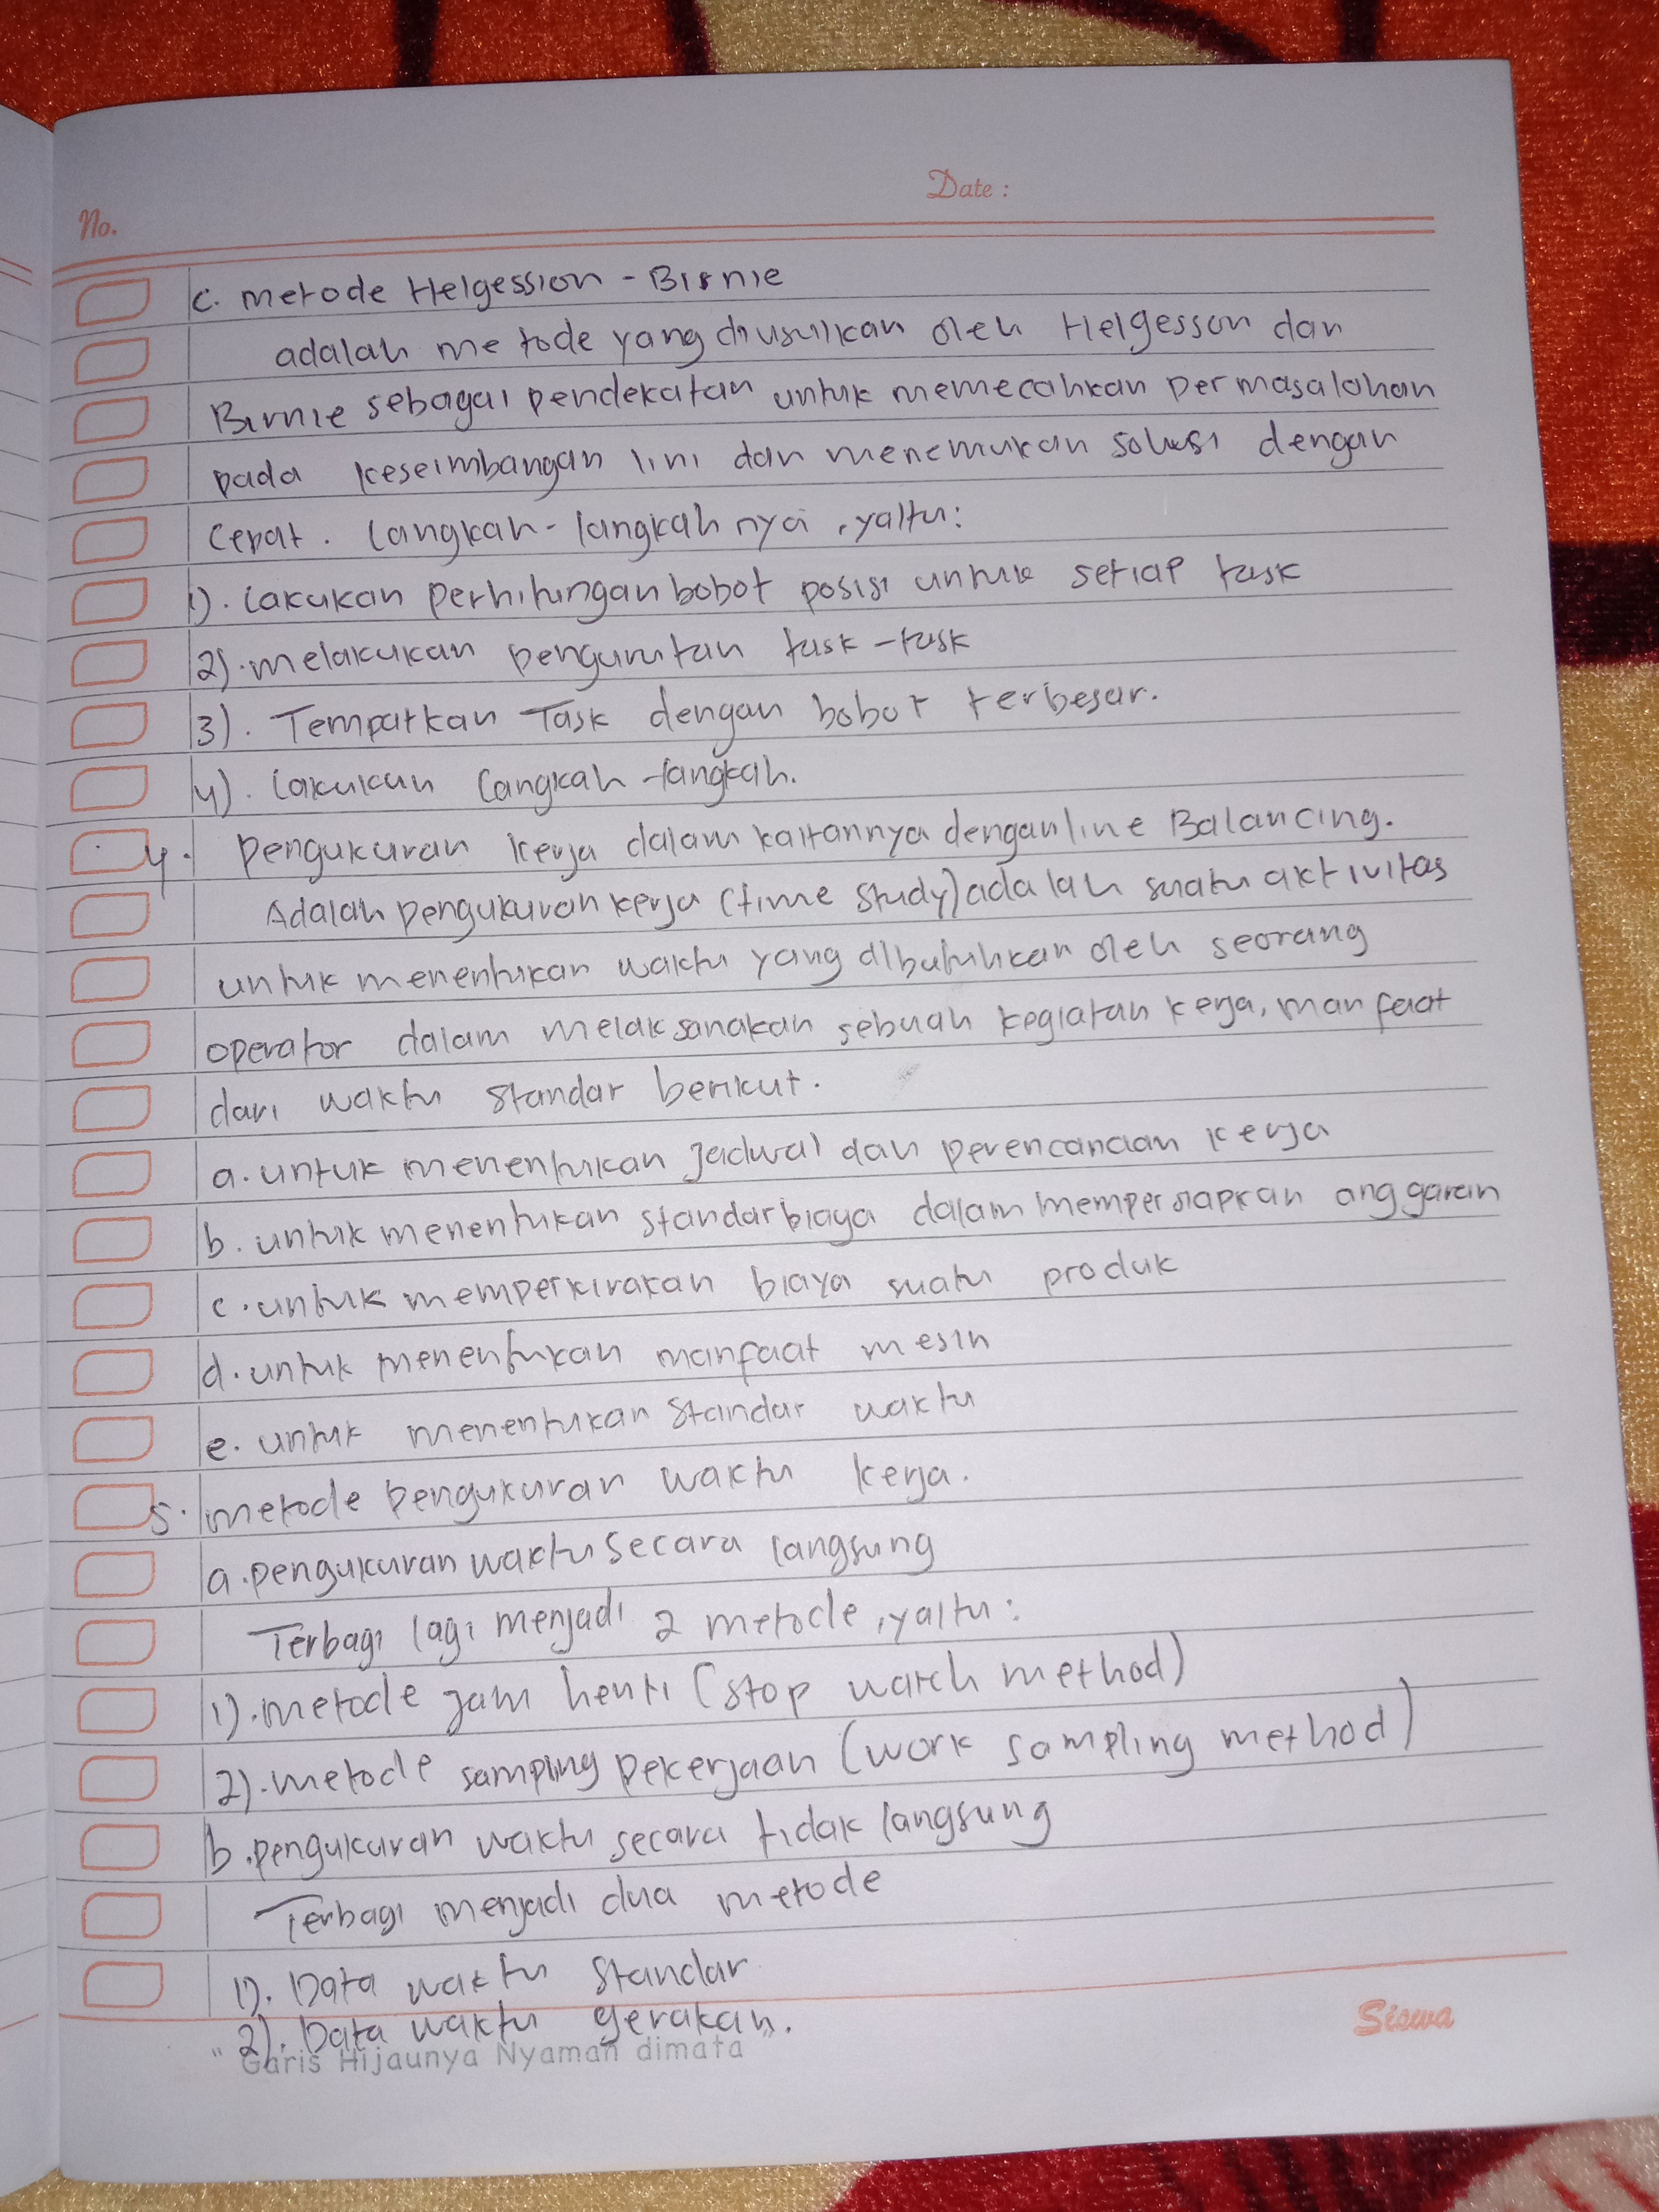 No.
Date :
c. metode Helgession - Birnie
adalah metode yang diusulkan oleh Helgesson dan
Birnie sebagai pendekatan untuk memecahkan permasalahan
pada keseimbangan lini dan menemukan solusi dengan
cepat. Langkah-langkah nya, yaitu:
1). Lakukan perhitungan bobot posisi untuk setiap task
2). melakukan pengurutan task-task
3). Tempatkan Task dengan bobot terbesar.
4). Lakukan langkah-langkah.
4. pengukuran kerja dalam kaitannya dengan line Balancing.
Adalah pengukuran kerja (time study) adalah suatu aktivitas
untuk menentukan waktu yang dibutuhkan oleh seorang
operator dalam melaksanakan sebuah kegiatan kerja, manfaat
dari waktu standar berikut.
a. untuk menentukan jadwal dan perencanaan kerja
b. untuk menentukan standar biaya dalam mempersiapkan anggaran
c. untuk memperkirakan biaya suatu produk
d. untuk menentukan manfaat mesin
e. untuk menentukan standar waktu
5. metode pengukuran waktu kerja.
a. pengukuran waktu secara langsung
Terbagi lagi menjadi 2 metode, yaitu:
1). metode jam henti (stop watch method)
2). metode sampling pekerjaan (work sampling method)
b. pengukuran waktu secara tidak langsung
Terbagi menjadi dua metode
1). Data waktu standar
2). Data waktu gerakan.
Siswa
" Garis Hijaunya Nyaman dimata "